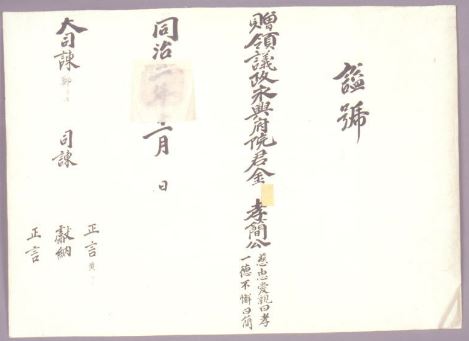 諡號
贈領議政永興府院君金 孝簡公
慈忠愛親曰孝
一德不懈曰簡
同治二年十二月 日
大司諫
司諫
獻納
正言
正言